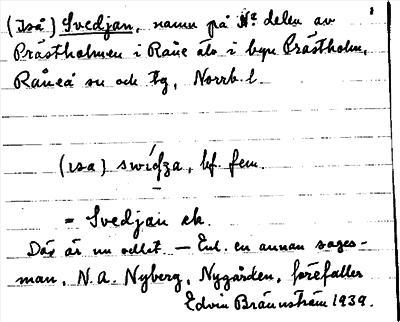 (Iså) Svedjan, namn på N. delen av
Prästholmen i Råne älv i byn Prästholm,
Råneå sn och tg, Norrb. l.
(ɪsa) , bf. fem.
= Svedjan ek.
Där är nu odlat. — Enl. en annan sages-
man, N. A. Nyberg, Nygården, förefaller
Edvin Brännström 1939.